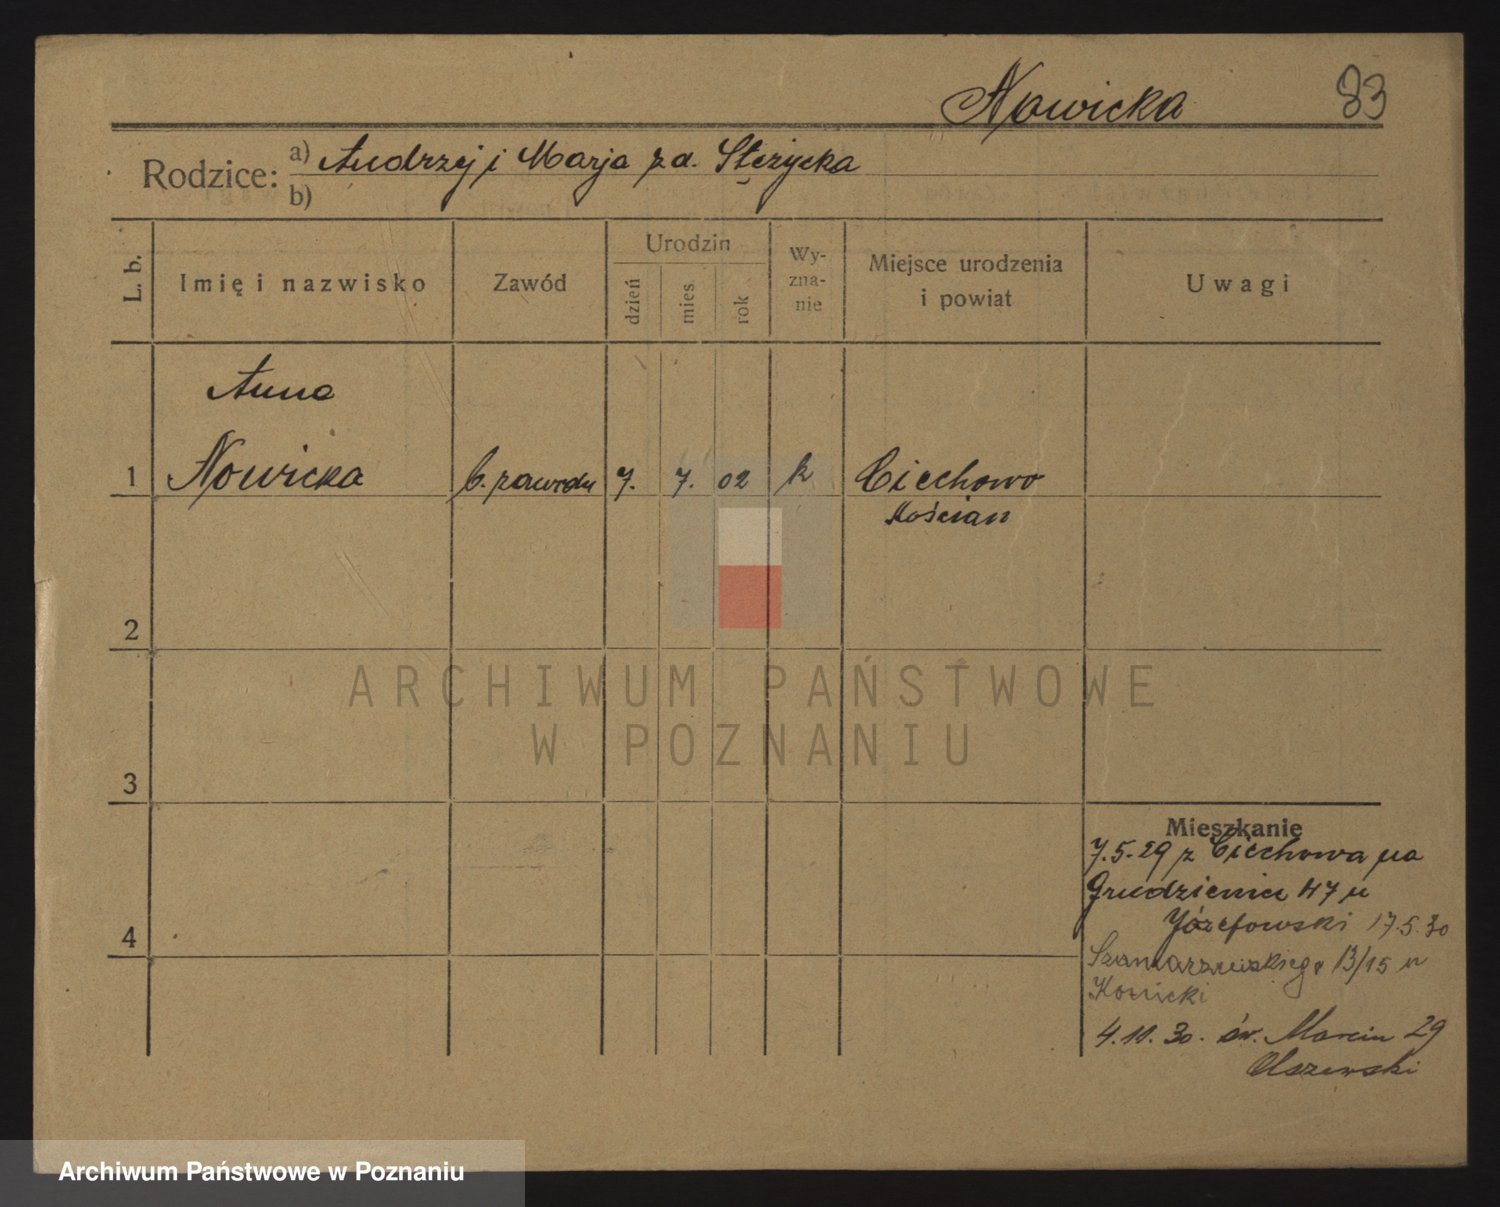 Nowicka 83
Rodzice: a) Andrzej i Marja z d. Stężycka
b)
L. b.
Imię i nazwisko
Zawód
Urodzin
dzień
mies
rok
Wy-
zna-
nie
Miejsce urodzenia
i powiat
Uwagi
Anna
1 Nowicka b. zawodu 7. 7. 02 k Ciechowo
Kościan
2
ARCHIWUM PAŃSTWOWE
W POZNANIU
3
Mieszkanie
7.5.29 z Ciechowa na
Grudzieniec 47 u
4 Józefowski 17.5.30
Szamarzewskiego 13/15 u
Koznicki
4.11.30. św. Marcin 29
Olszewski
Archiwum Państwowe w Poznaniu